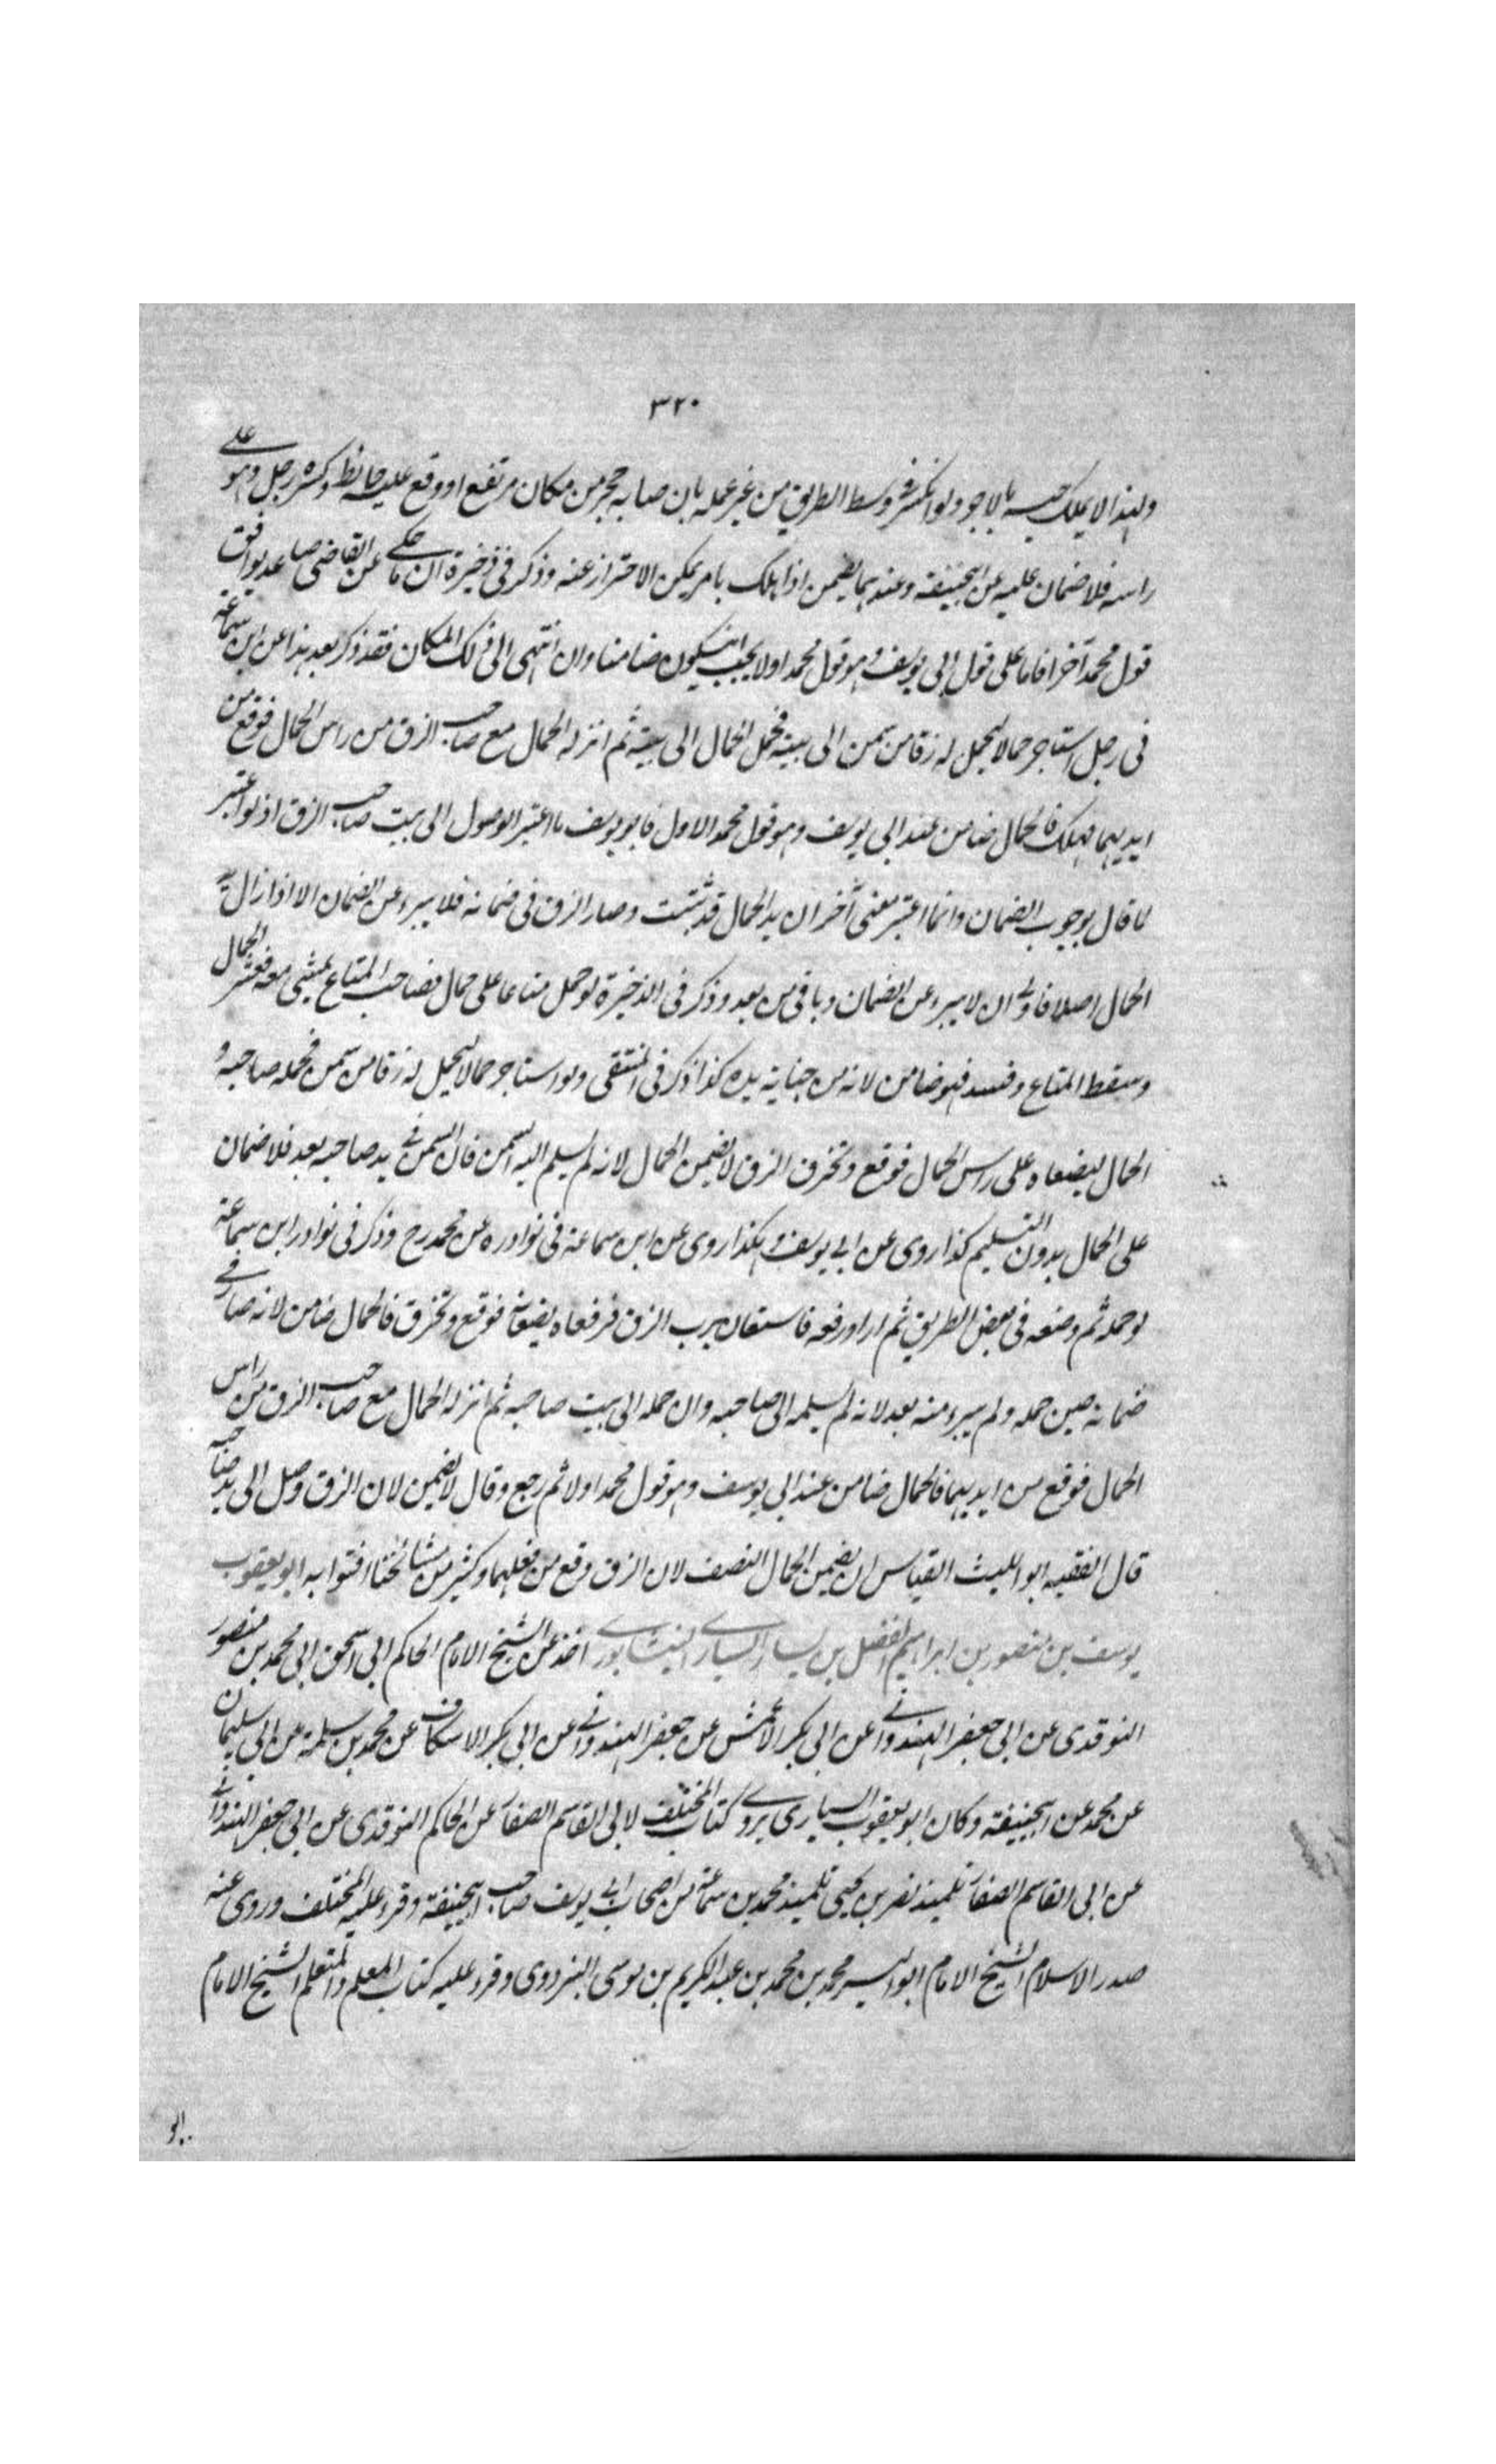 ٣٢٠
ولهذا لا يملك حبسه بالاجر ولو انكسر فى وسط الطريق من غير عمله بان اصابه حجر من مكان مرتفع او وقع عليه حائط وكسره رجل وهو على
راسه فلا ضمان عليه عن ابيحنيفة وعندهما يضمن اذا هلك بامر يمكن الاحتراز عنه وذكر فى ذخيرة ان ما حكى عن القاضى صاعد يوافق
قول محمد آخرا فاما على قول ابى يوسف وهو قول محمد اولا يجب ان يكون ضامنا وان انتهى الى ذلك المكان فقد ذكر بعد هذا عن ابن سماعة
فى رجل استاجر حمالا ليحمل له زقا من سمن الى بيته فحمل الحمال الى بيته ثم انزله الحمال مع صاحب الزق من راس الحمال فوقع من
ايديهما فهلك فالحمال ضامن عند ابى يوسف وهو قول محمد الاول فابو يوسف ما اعتبر الوصول الى بيت صاحب الزق اذ لو اعتبر
لما قال بوجوب الضمان وانما اعتبر معنى آخر ان يد الحمال قد ثبتت وصار الزق فى ضمانه فلا يبرء عن الضمان الا اذا زال يد
الحمال اصلا فاولى ان لا يبرء عن الضمان وباقى من بعد وذكر فى الذخيرة لو حمل متاعا على حمال فصاحب المتاع يمشى معه فعثر الحمال
وسقط المتاع وفسد فهو ضامن لانه من جناية يده كذا ذكر فى المنتقى ولو استاجر حمالا ليحمل له زقا من سمن فحمله صاحبه و
الحمال ليضعاه على راس الحمال فوقع وتخرق الزق لا يضمن الحمال لانه لم يسلم اليه السمن فان السمن فى يد صاحبه بعد فلا ضمان
على الحمال بدون التسليم كذا روى عن ابى يوسف وهكذا روى عن ابن سماعة فى نوادره عن محمد رح وذكر فى نوادر ابن سماعة
لو حمله ثم وضعه فى بعض الطريق ثم اراد رفعه فاستعان برب الزق فرفعاه يضعانه فوقع وتخرق فالحمال ضامن لانه صار فى
ضمانه حين حمله ولم يبرء منه بعد لانه لم يسلمه الى صاحبه وان حمله الى بيت صاحبه ثم انزله الحمال مع صاحب الزق من راس
الحمال فوقع من ايديهما فالحمال ضامن عند ابى يوسف وهو قول محمد اولا ثم رجع وقال لا يضمن لان الزق وصل الى يد صاحبه
قال الفقيه ابو الليث القياس ان يضمن الحمال النصف لان الزق وقع من فعلهما وكثير من مشائخنا افتوا به ابو يعقوب
يوسف بن منصور بن ابراهيم الفضل بن يسار السيارى النيشابورى اخذ عن الشيخ الامام الحاكم ابى اسحق ابى محمد بن منصور
النوقدى عن ابى جعفر الهندوانى عن ابى بكر الاعمش عن جعفر الهندوانى عن ابى بكر الاسكاف عن محمد بن سلمة عن ابى سليمان
عن محمد عن ابيحنيفة وكان ابو يعقوب السيارى يروى كتاب المختلف لابى القاسم الصفار عن الحاكم النوقدى عن ابى جعفر الهندوانى
عن ابى القاسم الصفار تلميذ نصر بن يحيى تلميذ محمد بن سماعة من اصحاب ابى يوسف صاحب ابيحنيفة وقرء عليه المختلف وروى عنه
صدر الاسلام الشيخ الامام ابو اليسر محمد بن محمد بن عبد الكريم بن موسى البزدوى وقرء عليه كتاب المعلم والمتعلم الشيخ الامام
ابو